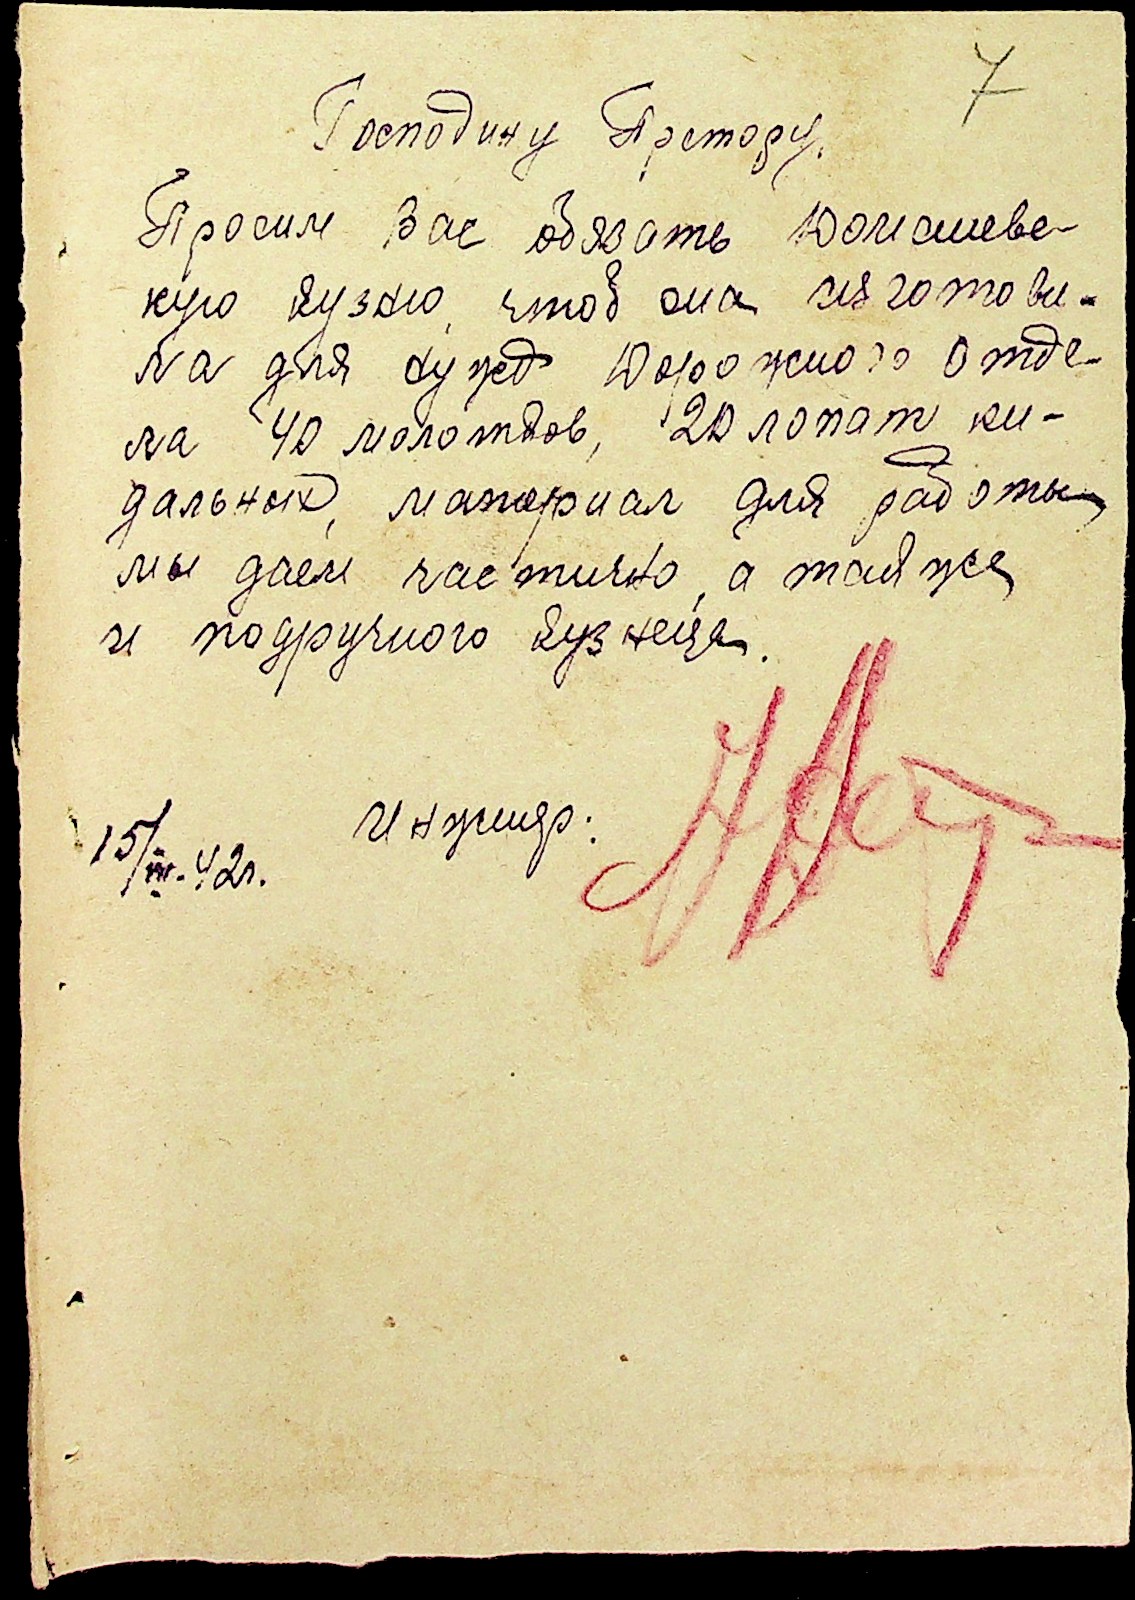 7
Господину Претору.
Просим Вас обязать Домашевс-
кую кузню, чтоб она изготови-
ла для нужд Дорожного отде-
ла 40 молотков, 20 лопат ки-
дальных, материал для работы
мы даем частично, а также
и подручного кузнеца.
15/III-42г.
Инженер: